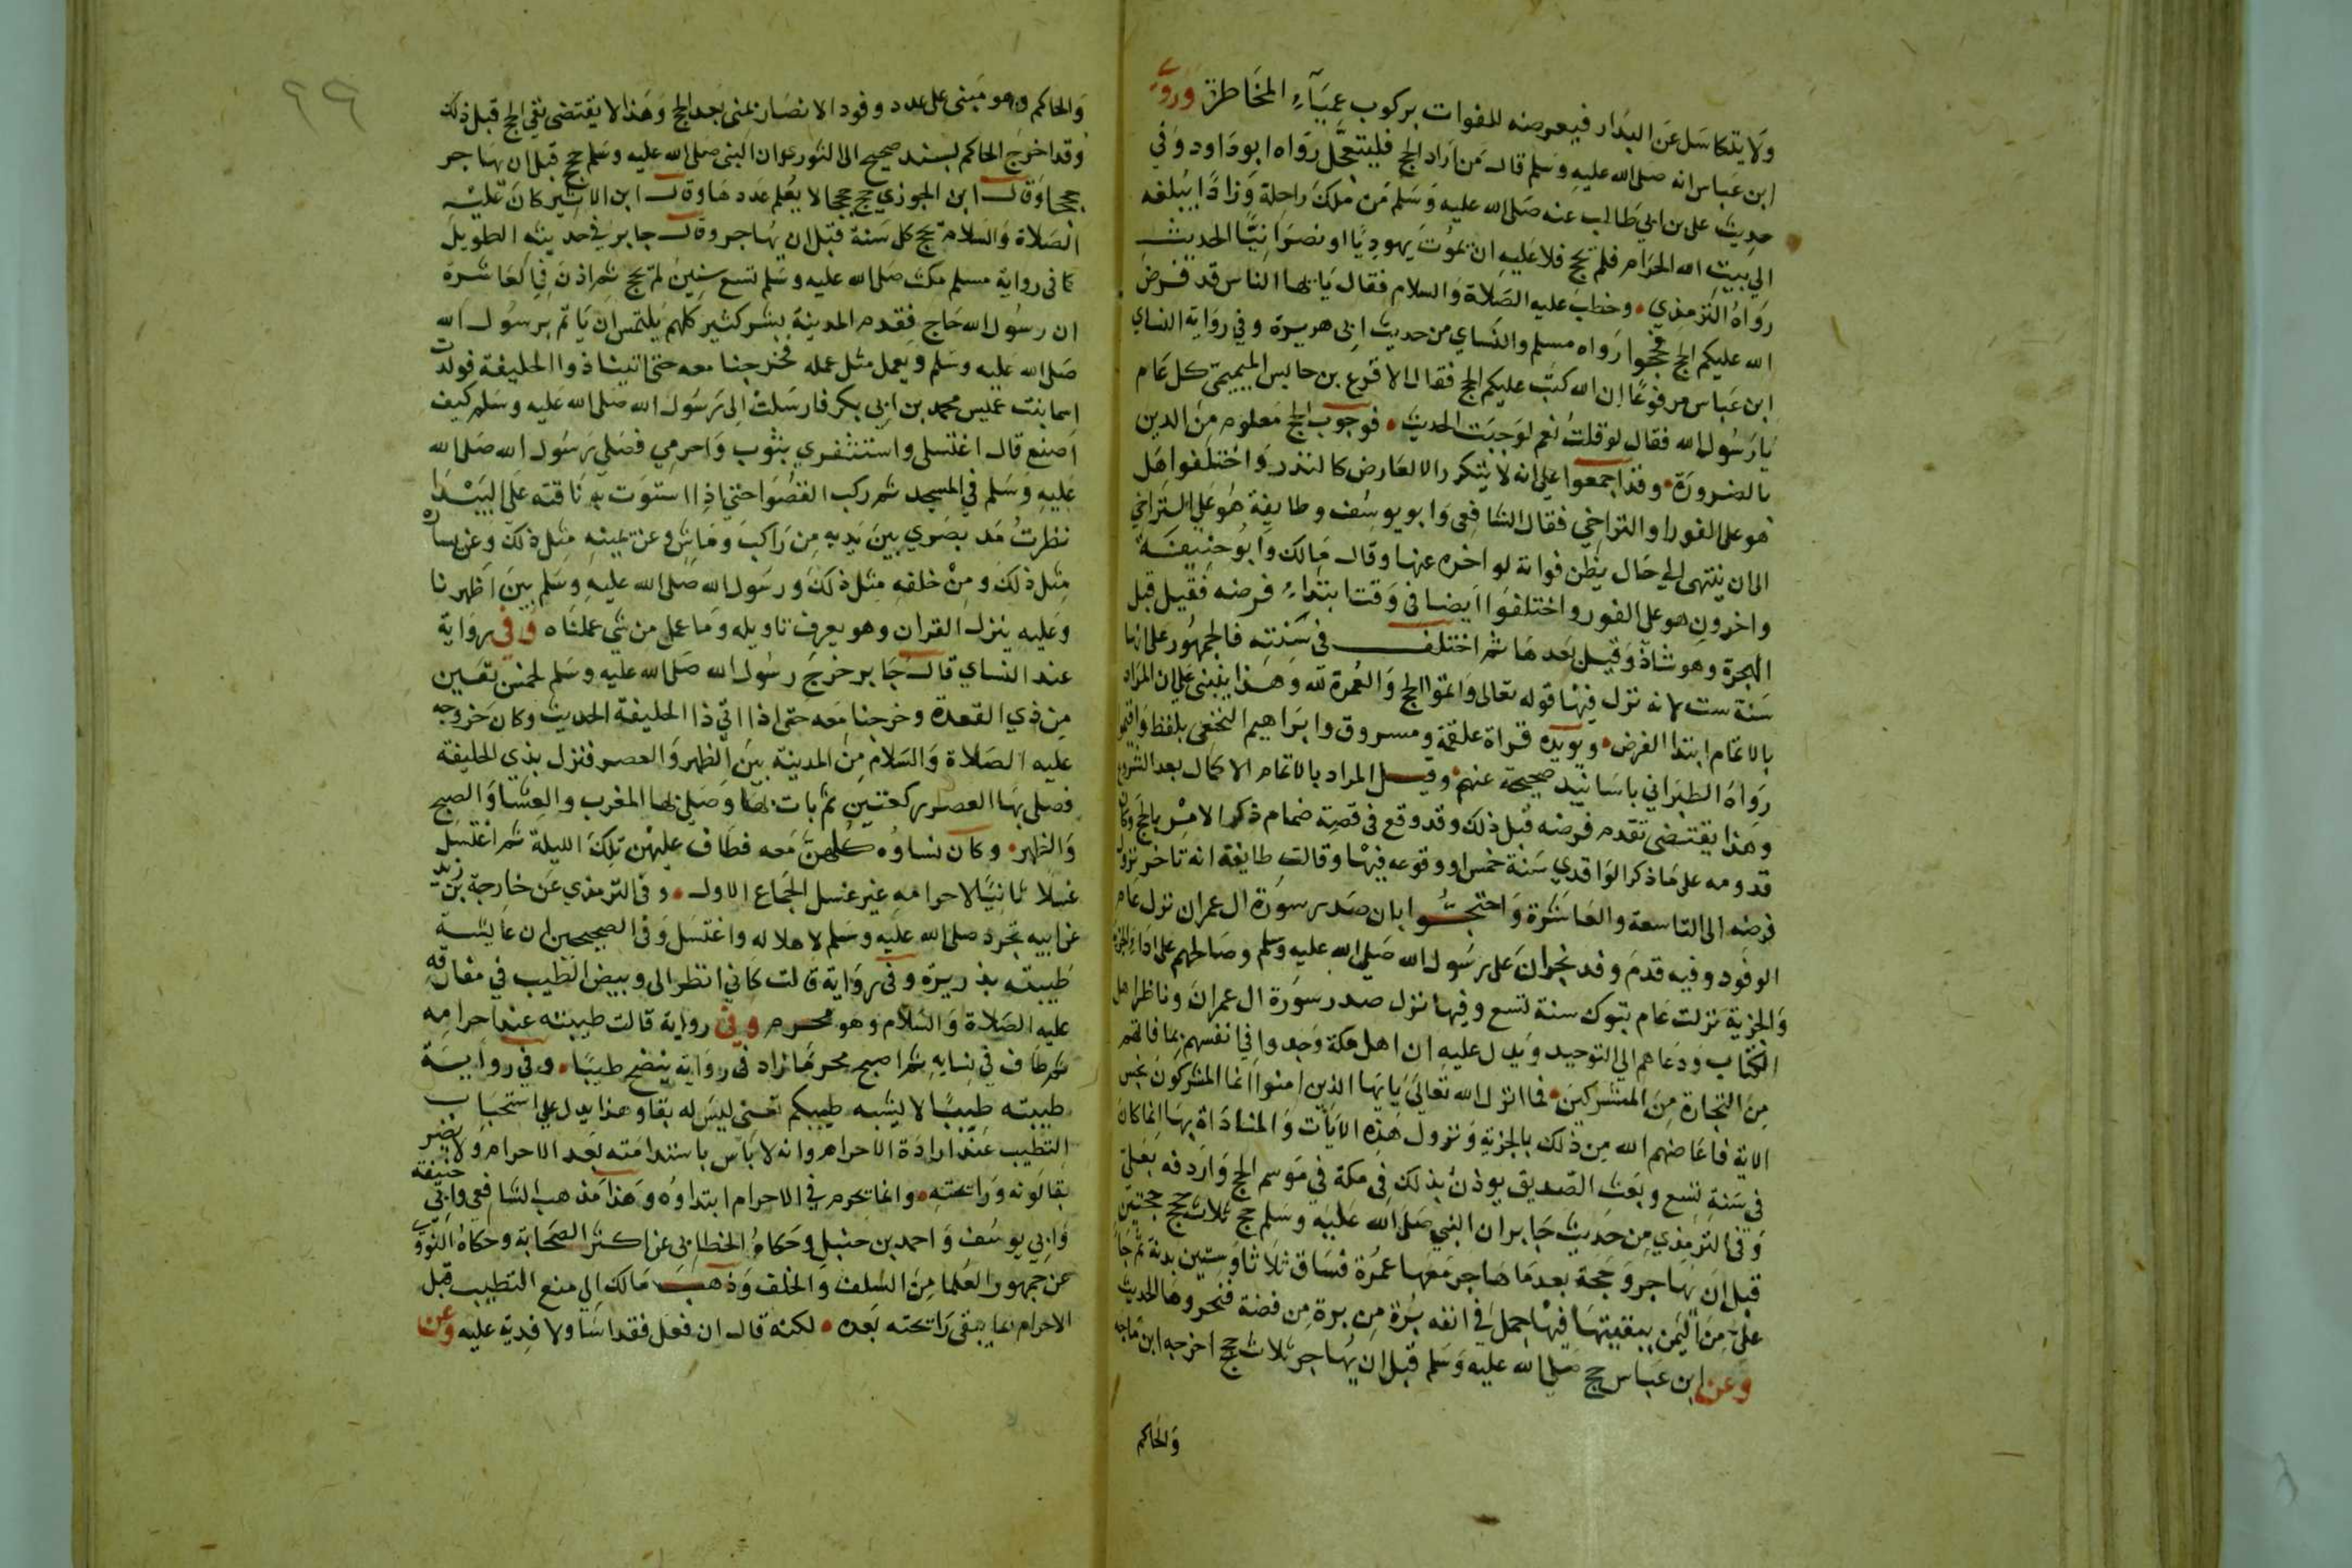 ولا يتكاسل عن البدار فيعرضه للفوات بركوب عمياء المخاطرة وروى
ابن عباس انه صلى الله عليه وسلم قال من اراد الحج فليتعجل رواه ابو داود وفي
حديث على بن ابي طالب عنه صلى الله عليه وسلم من ملك راحلة وزادا يبلغه
الى بيت الله الحرام فلم يحج فلا عليه ان يموت يهوديا او نصرانيا الحديث
رواه الترمذي وخطب عليه الصلاة والسلام فقال يا ايها الناس قد فرض
الله عليكم الحج فحجوا رواه مسلم والنساي من حديث ابى هريرة وفي رواية النساي
ابن عباس مرفوعا ان الله كتب عليكم الحج فقال الاقرع بن حابس التميمى كل عام
يا رسول الله فقال لو قلت نعم لوجبت الحديث فوجوب الحج معلوم من الدين
بالضرورة وقد اجمعوا على انه لا يتكرر الا لعارض كالنذر واختلفوا هل
هو على الفور او التراخي فقال الشافعى وابو يوسف وطايفة هو على التراخي
الى ان ينتهى الى حال يظن فواته لو اخره عنها وقال مالك وابو حنيفة
واخرون هو على الفور واختلفوا ايضا فى وقت ابتداء فرضه فقيل قبل
الهجرة وهو شاذ وقيل بعدها ثم اختلف فى سنته فالجمهور على انها
سنة ست لانه نزل فيها قوله تعالى واتموا الحج والعمرة لله وهذا ينبنى على ان المراد
بالاتمام ابتدا الفرض ويويده قراة علقمة ومسروق وابراهيم النخعى بلفظ واقيموا
رواه الطبراني باسانيد صحيحة عنهم وقيل المراد بالاتمام الاكمال بعد الشروع
وهذا يقتضى تقدم فرضه قبل ذلك وقد وقع فى قصة ضمام ذكر الامر بالحج وكان
قدومه على ما ذكر الواقدي سنة خمس او وقوعه فيها وقالت طايفة انه تاخر نزول
فرضه الى التاسعة والعاشرة واحتجوا بان صدر سورة ال عمران نزل عام
الوفود وفيه قدم وفد نجران على رسول الله صلى الله عليه وسلم وصالحهم على اداء الجزية
والجزية نزلت عام تبوك سنة تسع وفيها نزل صدر سورة ال عمران وناظر اهل
الكتاب ودعاهم الى التوحيد ويدل عليه ان اهل مكة وجدوا في انفسهم بما فاتهم
من التجارة من المشركين فما انزل الله تعالى يايها الذين امنوا انما المشركون نجس
الاية فاعاضهم الله من ذلك بالجزية ونزول هذه الايات والمناداة بها انما كان
فى سنة تسع وبعث الصديق يوذن بذلك في مكة في موسم الحج واردفه بعلي
وفى الترمذي من حديث جابر ان النبي صلى الله عليه وسلم حج ثلاث حجج حجتين
قبل ان يهاجر وحجة بعد ما هاجر معها عمرة فساق ثلاثا وستين بدنة ثم جا
على من اليمن ببقيتها فيها جمل في انفه برة من فضة فنحروها الحديث
وعن ابن عباس حج صلى الله عليه وسلم قبل ان يهاجر ثلاث حجج اخرجه ابن ماجه
والحاكم
٩٩
والحاكم وهو مبنى على عدد وفود الانصار بمنى بعد الحج وهذا لا يقتضى نفى الحج قبل ذلك
وقد اخرج الحاكم بسند صحيح الى الثوري ان النبى صلى الله عليه وسلم حج قبل ان يهاجر
حججا وقال ابن الجوزي حج حججا لا يعلم عددها وقال ابن الاثير كان عليه
الصلاة والسلام يحج كل سنة قبل ان يهاجر وقال جابر في حديثه الطويل
كما فى رواية مسلم مكث صلى الله عليه وسلم تسع سنين لم يحج ثم اذن في العاشرة
ان رسول الله حاج فقدم المدينة بشر كثير كلهم يلتمس ان ياتم برسول الله
صلى الله عليه وسلم ويعمل مثل عمله فخرجنا معه حتى اتينا ذوا الحليفة فولدت
اسما بنت عميس محمد بن ابي بكر فارسلت الى رسول الله صلى الله عليه وسلم كيف
اصنع قال اغتسلى واستثفري بثوب واحرمي فصلى رسول الله صلى الله
عليه وسلم في المسجد ثم ركب القصوا حتى اذا استوت به ناقته على البيدا
نظرت مد بصري بين يديه من راكب وماش وعن يمينه مثل ذلك وعن يساره
مثل ذلك ومن خلفه مثل ذلك ورسول الله صلى الله عليه وسلم بين اظهرنا
وعليه ينزل القران وهو يعرف تاويله وما عمل من شي عملناه وفى رواية
عند النساي قال جابر خرج رسول الله صلى الله عليه وسلم لخمس بقين
من ذي القعدة وخرجنا معه حتى اذا اتي ذا الحليفة الحديث وكان خروجه
عليه الصلاة والسلام من المدينة بين الظهر والعصر فنزل بذي الحليفة
فصلى بها العصر ركعتين ثم بات بها وصلى بها المغرب والعشا والصبح
والظهر وكان نساوه كلهن معه فطاف عليهن تلك الليلة ثم اغتسل
غسلا ثانيا لاحرامه غير غسل الجماع الاول وفى الترمذي عن خارجة بن زيد
عن ابيه تجرد صلى الله عليه وسلم لاهلاله واغتسل وفى الصحيحين ان عايشة
طيبته بذريرة وفى رواية قالت كاني انظر الى وبيض الطيب في مفارقه
عليه الصلاة والسلام وهو محرم وفى رواية قالت طيبته عند احرامه
ثم طاف في نسايه ثم اصبح محرما زاد فى رواية ينضح طيبا وفي رواية
طيبته طيبا لا يشبه طيبكم تعنى ليس له بقا وهذا يدل على استحباب
التطيب عند ارادة الاحرام وانه لا باس باستدامته بعد الاحرام ولا يضر
بقا لونه ورايحته وانما يحرم في الاحرام ابتداوه وهذا مذهب الشافعى وابى حنيفة
وابي يوسف واحمد بن حنبل وحكاه الخطابى عن اكثر الصحابة وحكاه النووي
عن جمهور العلما من السلف والخلف وذهب مالك الى منع التطيب قبل
الاحرام بما يبقى رايحته بعده لكنه قال ان فعل فقد اسا ولا فدية عليه وعن